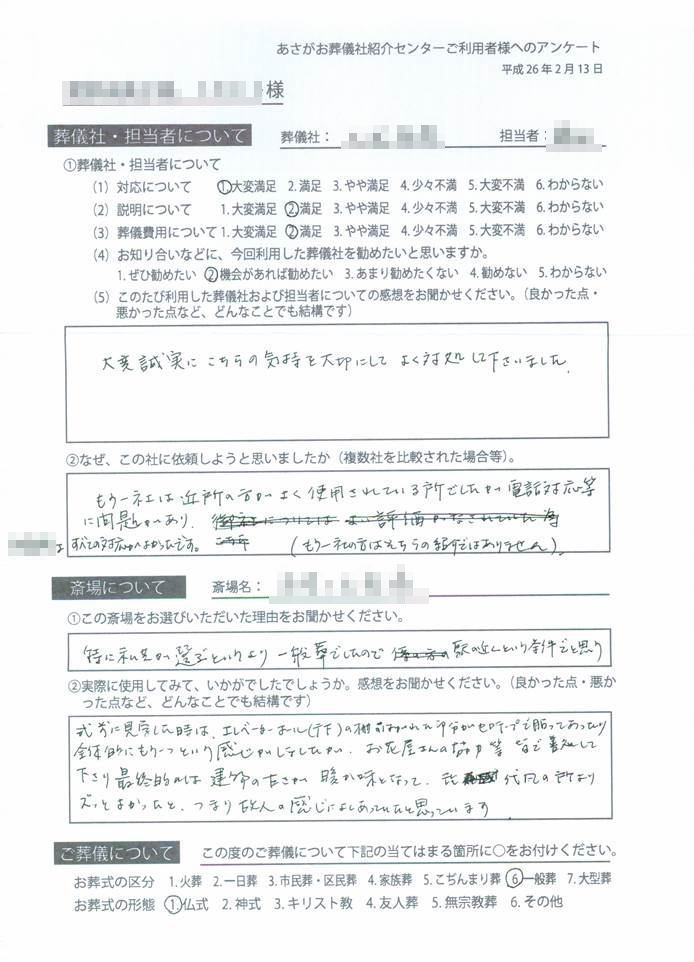 あさがお葬儀社紹介センターご利用者様へのアンケート
平成26年2月13日
様
葬儀社・担当者について 葬儀社： 担当者：
①葬儀社・担当者について
（1）対応について ①大変満足 2.満足 3.やや満足 4.少々不満 5.大変不満 6.わからない
（2）説明について 1.大変満足 ②満足 3.やや満足 4.少々不満 5.大変不満 6.わからない
（3）葬儀費用について 1.大変満足 ②満足 3.やや満足 4.少々不満 5.大変不満 6.わからない
（4）お知り合いなどに、今回利用した葬儀社を勧めたいと思いますか。
1.ぜひ勧めたい ②機会があれば勧めたい 3.あまり勧めたくない 4.勧めない 5.わからない
（5）このたび利用した葬儀社および担当者についての感想をお聞かせください。（良かった点・
悪かった点など、どんなことでも結構です）
大変誠実にこちらの気持を大切にして よく対処して下さいました。
②なぜ、この社に依頼しようと思いましたか（複数社を比較された場合等）。
もう一社は近所の方がよく使用されている所でしたが電話対応等
に問題があり、御社については よい評価がなされていた為
すべての対応がよかったです。 （もう一社の方はそちらの紹介ではありません）。
斎場について 斎場名：
①この斎場をお選びいただいた理由をお聞かせください。
特に私共が選ぶというより 一般葬でしたので 駅の近くという条件でと思り
②実際に使用してみて、いかがでしたでしょうか。感想をお聞かせください。（良かった点・悪か
った点など、どんなことでも結構です）
式前に見学した時は、エレベーターホール(下下)の 部分がセロテープで貼ってあったり
全体的にもう一つという感じがしましたが、お花屋さんの協力等 などで善処して
下さり 最終的には 建物の古さが 暖か味となって、 代風の所より
ズッとよかったと、つまり故人の感じによくあっていたと思っています
ご葬儀について この度のご葬儀について下記の当てはまる箇所に○をお付けください。
お葬式の区分 1.火葬 2.一日葬 3.市民葬・区民葬 4.家族葬 5.こぢんまり葬 ⑥一般葬 7.大型葬
お葬式の形態 ①仏式 2.神式 3.キリスト教 4.友人葬 5.無宗教葬 6.その他